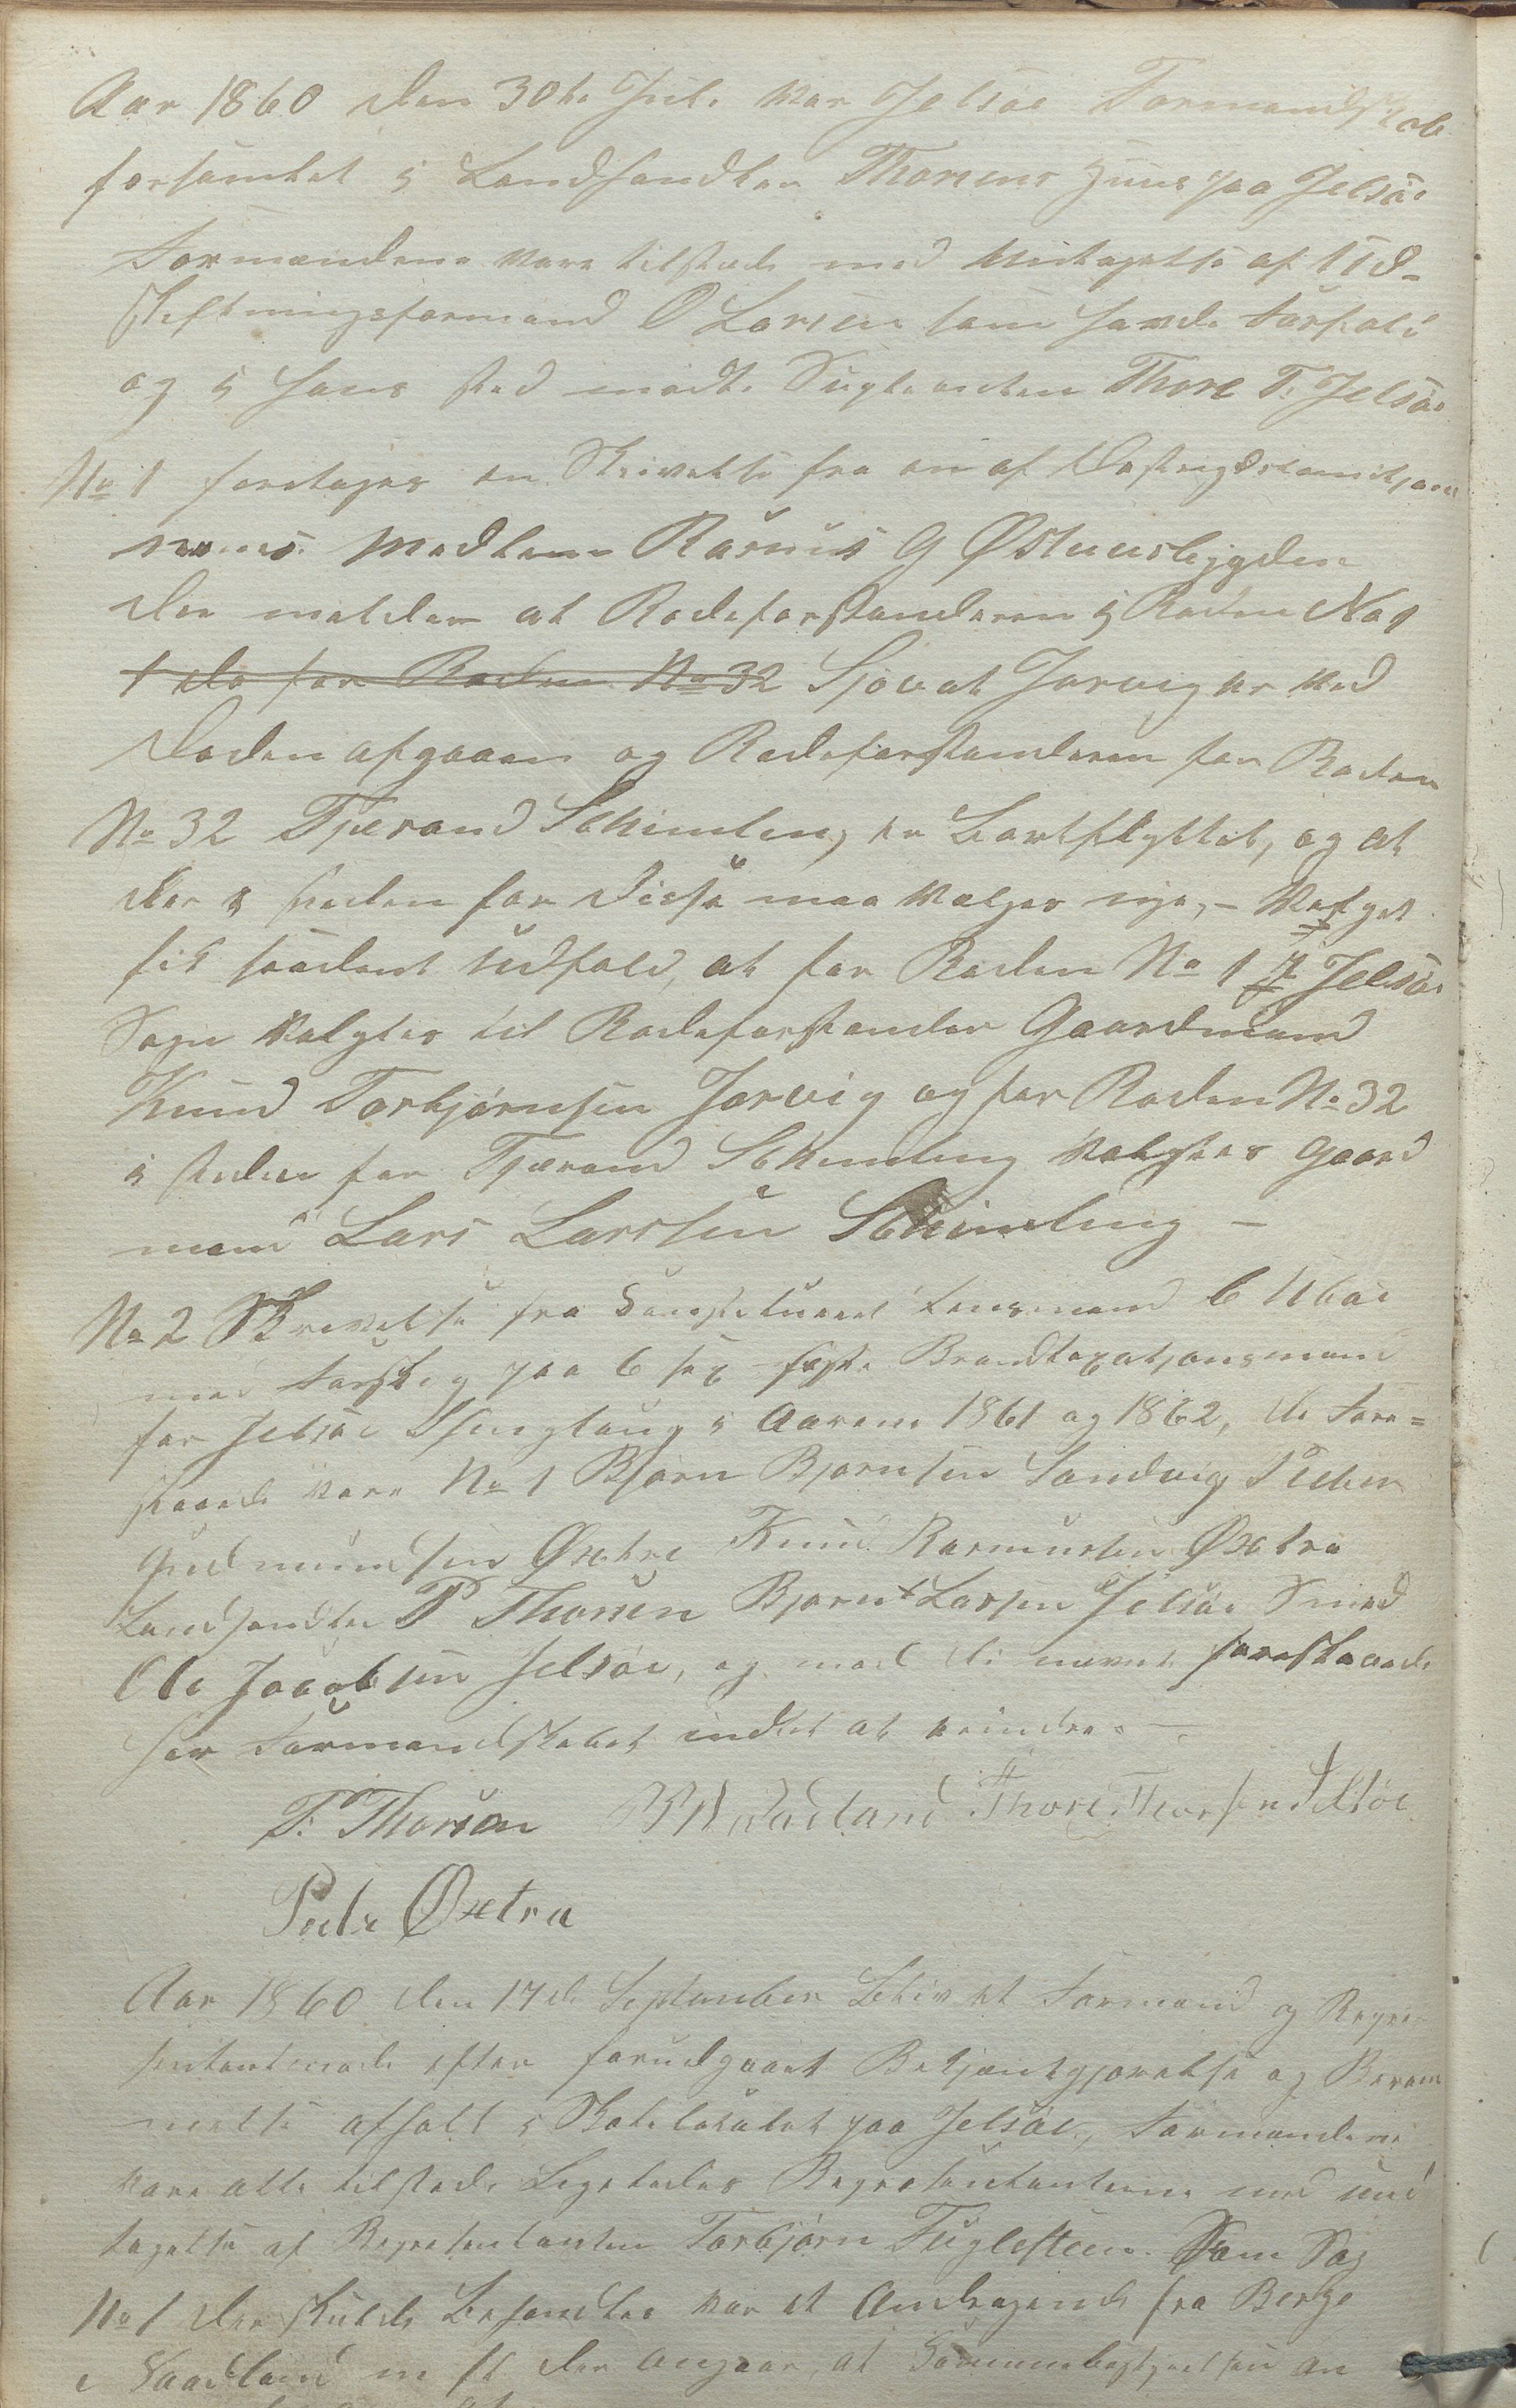 Aar 1860 den 30te Juli var Jelsøe Formandskab
forsamlet i Landhandler Thorsens Huus paa Jelsøe
Formændene vare tilstæde med Undtagelse af Ud-
skiftningsformand O Larsen som havde Forfald
og i hans sted mødte Supleanten Thore T. Jelsøe
No 1 foretoges en Skrivelse fra en af Fattigcommisjo
nens Medlem Rasmus G Østenusbygden
der melder at Rodeforstanderen i Roden No 1
1 do for Roden No 32 Sjovat Jorvig er ved
Døden afgaaen og Rodeforstanderen for Roden
No 32 Tjerand Schimling er Bortflyttet, og at
der i steden for disse maa Vælges nye, - Valget
fik saadant Udfald, at for Roden No 1 i Jelsøe
Sogn Valgtes til Rodeforstander Gaardmand
Knud Torbjørnsen Jorvig og for Roden No 32
i steden for Tjerand Schimling Valgtes Gaard
mand Lars Larsen Schimling -
No 2 Skrivelse fra Constitueret Lensmand C Ubøe
med Forslag paa 6 sex faste Brandtaxatjonsmænd
for Jelsøe Thinglaug i Aarene 1861 og 1862, de Fore=
slaaede vare No 1 Bjørn Bjørnsen Sandvig Peder
Gudmundsen Øxtre Knud Rasmussen Øxtra
Landhandler P Thorsen Bjørn Larsen Jelsøe Smed
Ole Jacobsen Jelsøe, og mod de nævnte foreslaaede
har Formandskabet indtet at erindre. -
P. Thorsen Vadland Thore Thorsen Jelsøe
Peder Øxtra
Aar 1860 den 17de September Blev et Formand og Repræ
sentantmøde efter forudgaaet Bekjendtgjørelse og Beram
melse afholt i Skolelokalet paa Jelsøe, Formændene
vare alle tilstæde Ligeledes Repræsentanterne med und
tagelse af Representanten Torbjørn Fuglesteen. Som Sag
No 1 der skulde Behandles var et Andragende fra Berge
Vaadland m fl der angaar, at Communebestyrelsen an